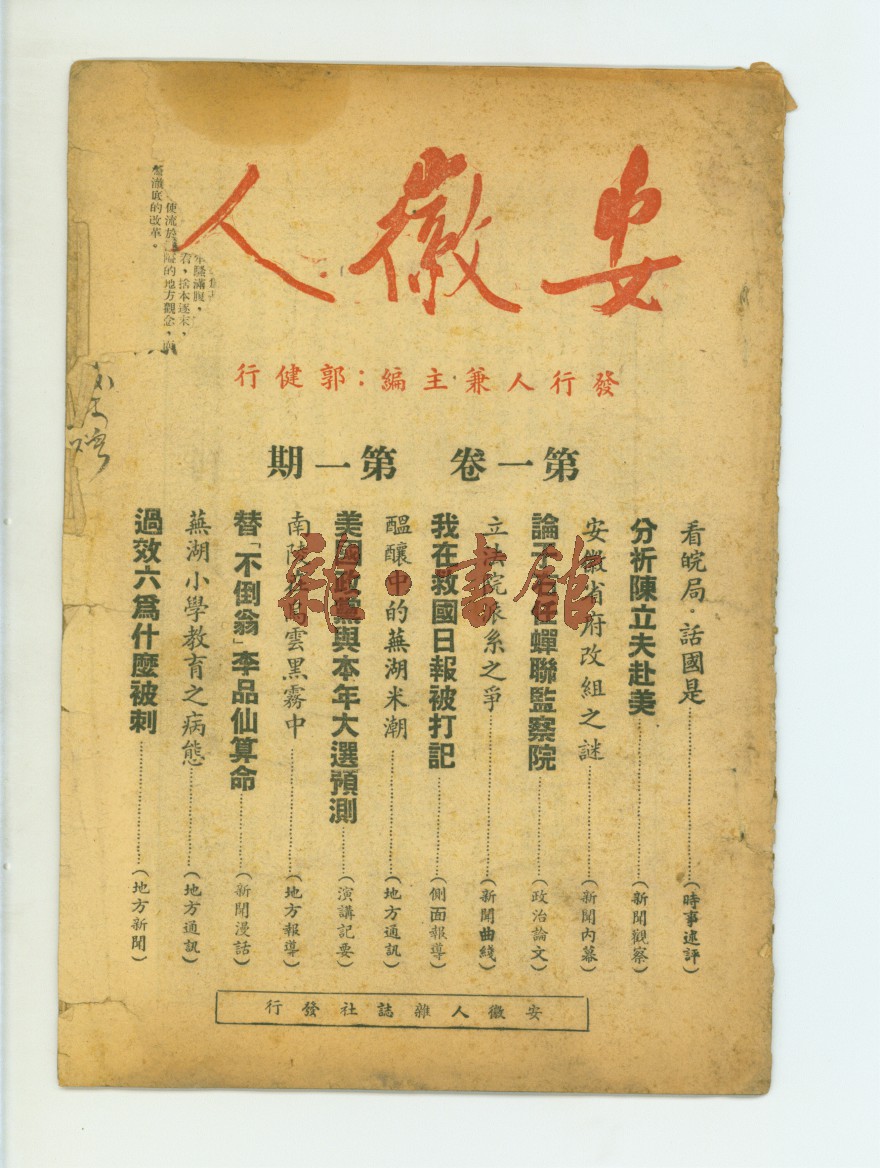 安徽人
發行人兼主編：郭健行
第一卷 第一期
看皖局·話國是………（時事述評）
分析陳立夫赴美………（新聞觀察）
安徽省府改組之謎………（新聞內幕）
論于右任蟬聯監察院………（政治論文）
立法院派系之爭………（新聞曲綫）
我在救國日報被打記………（側面報導）
醞釀中的蕪湖米潮………（地方通訊）
美國政黨與本年大選預測………（演講記要）
南陵在烏雲黑霧中………（地方報導）
替「不倒翁」李品仙算命………（新聞漫話）
蕪湖小學教育之病態………（地方通訊）
過效六爲什麼被刺………（地方新聞）
安徽人雜誌社發行
便流於
的地方觀念，
徹底的改革。
捨本逐末，
雜·書館